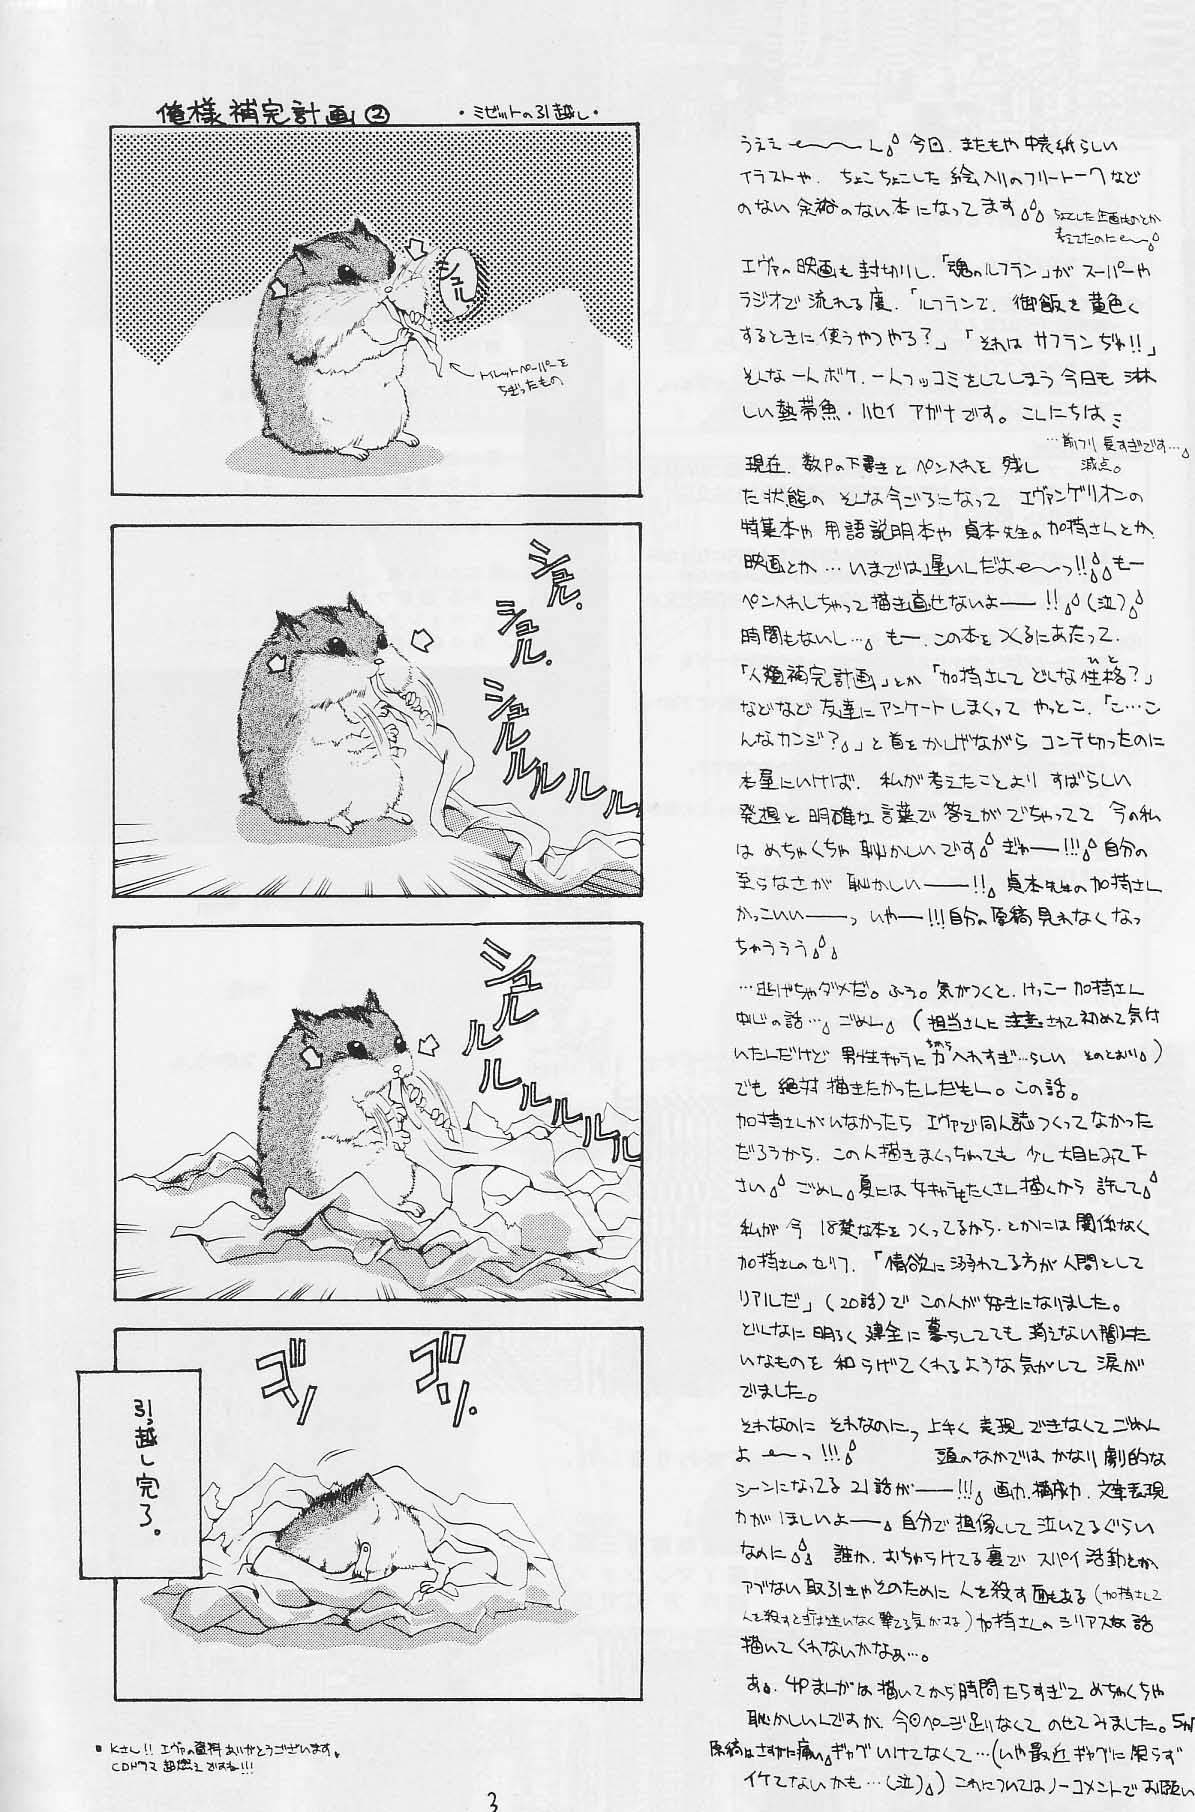 俺様補完計画②
・ミゼットの引越し・
シュル
トイレットペーパーを
ちぎったもの
シュル。
シュル。
シュルルルルル
シュルルルルルル
ゴソ
ゴソ。
引っ越し完了。
うええ〜〜〜ん 今回、またもや中表紙らしい
イラストや、ちょこちょこした絵入りのフリートークなど
のない余裕のない本になってます
ちょこした企画ものとか
考えてたのに〜
エヴァの映画も封切りし、「魂のルフラン」がスーパーや
ラジオで流れる度、「ルフランで、御飯を黄色く
するときに使うやつやろ？」「それはサフランぢゃ!!」
そんな一人ボケ、一人ツッコミをしてしまう今日も淋
しい熱帯魚・ハセイアガナです。こんにちは
…前フリ長すぎです…
減点。
現在、数Pの下書きとペン入れを残し
た状態のそんな今ごろになってエヴァンゲリオンの
特集本や用語説明本や貞本先生の加持さんとか
映画とか…いまでは遅いんだよ〜〜っ!! もー
ペン入れしちゃって描き直せないよーー!!(泣)
時間もないし… もー、この本をつくるにあたって、
「人類補完計画」とか「加持さんてどんな性格？」
ひと
などなど友達にアンケートしまくってやっとこ、「こ…こ
んなカンジ？」と首をかしげながらコンテ切ったのに
本屋にいけば、私が考えたことよりすばらしい
発想と明確な言葉で答えがでちゃってて今の私
はめちゃくちゃ恥かしいです ぎゃー!!! 自分の
至らなさが恥かしいーーー!! 貞本先生の加持さん
かっこいいーーっ いやー!!!自分の原稿見れなくなっ
ちゃううう
…逃げちゃダメだ。ふう。気がつくと、けっこー加持さん
中心の話… ごめん （担当さんに注意されて初めて気付
いたんだけど男性キャラに力入れすぎ…らしい そのとおり）
ちから
でも絶対描きたかったんだもん。この話。
加持さんがいなかったらエヴァで同人誌つくってなかった
だろうから、この人描きまくっちゃっても少し大目にみて下
さい ごめん 夏には女キャラもたくさん描くから許して
私が今18禁な本をつくってるから、とかには関係なく
加持さんのセリフ、「情欲に溺れてる方が人間として
リアルだ」（20話）でこの人が好きになりました。
どんなに明るく健全に暮らしてても消えない闇みた
いなものを和らげてくれるような気がして涙が
でました。
それなのにそれなのにっ上手く表現できなくてごめん
よ〜〜っ!!! 頭のなかではかなり劇的な
シーンになってる21話がーーー!!! 画力、構成力、文章表現
力がほしいよーー 自分で想像して泣いてるぐらい
なのに 誰か、おちゃらけてる裏でスパイ活動とか
アブない取引きやそのために人を殺す面もある（加持さんて
人を殺すときは迷いなく撃てる気がする）加持さんのシリアスな話
描いてくれないかなぁ…。
あ、4Pまんがは描いてから時間たちすぎてめちゃくちゃ
恥かしいんですが、今回ページ足りなくてのせてみました。
原稿はさすがに痛い ギャグいけてなくて…（いや最近ギャグに限らず
イケてないかも…(泣)）これについてはノーコメントでお願い
■Kさん!! エヴァの資料ありがとうございます。
CDドラマ超燃えですね!!!
3